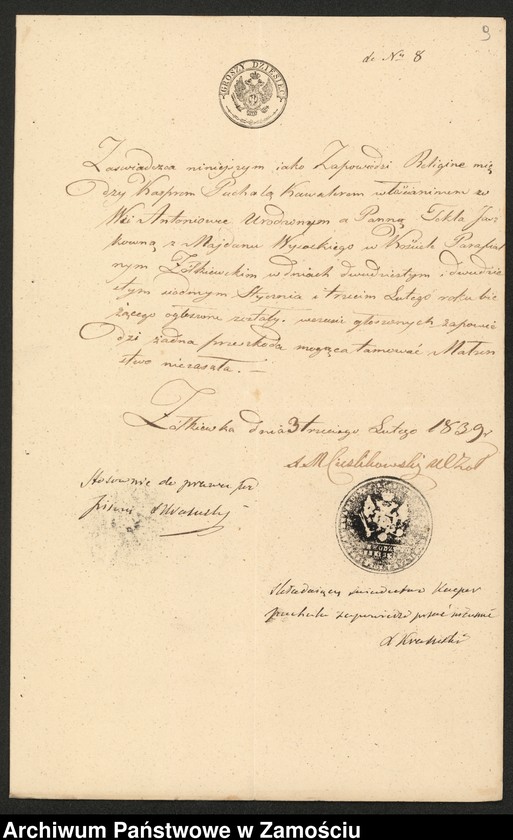 9
do Nru 8
GROSZY DZIESIĘĆ
Zaswiadcza niniejszym iako Zapowiedzi Religine mię
dzy Kasprem Puchalą Kawalerem włościaninem w
Wsi Antoniowce Urodzonym a Panną Teklą Jas
kowną z Majdanu Wysockiego w Kościele Parafial
nym Żółkiewskim w dniach dwudziestym i dwudzie
stym siodmym Stycznia i trzecim Lutego roku bie
żącego ogłoszone zostały. wczasie głoszonych zapowie
dzi żadna przeszkoda mogąca tamować Małżen
stwo niezaszła. —
Żółkiewka dnia 3 trzeciego Lutego 1839 r
Stosownie do prawa
Składaiący swiadectwo Kacper
Puchala zapowiedzi pisać nieumie
Archiwum Państwowe w Zamościu